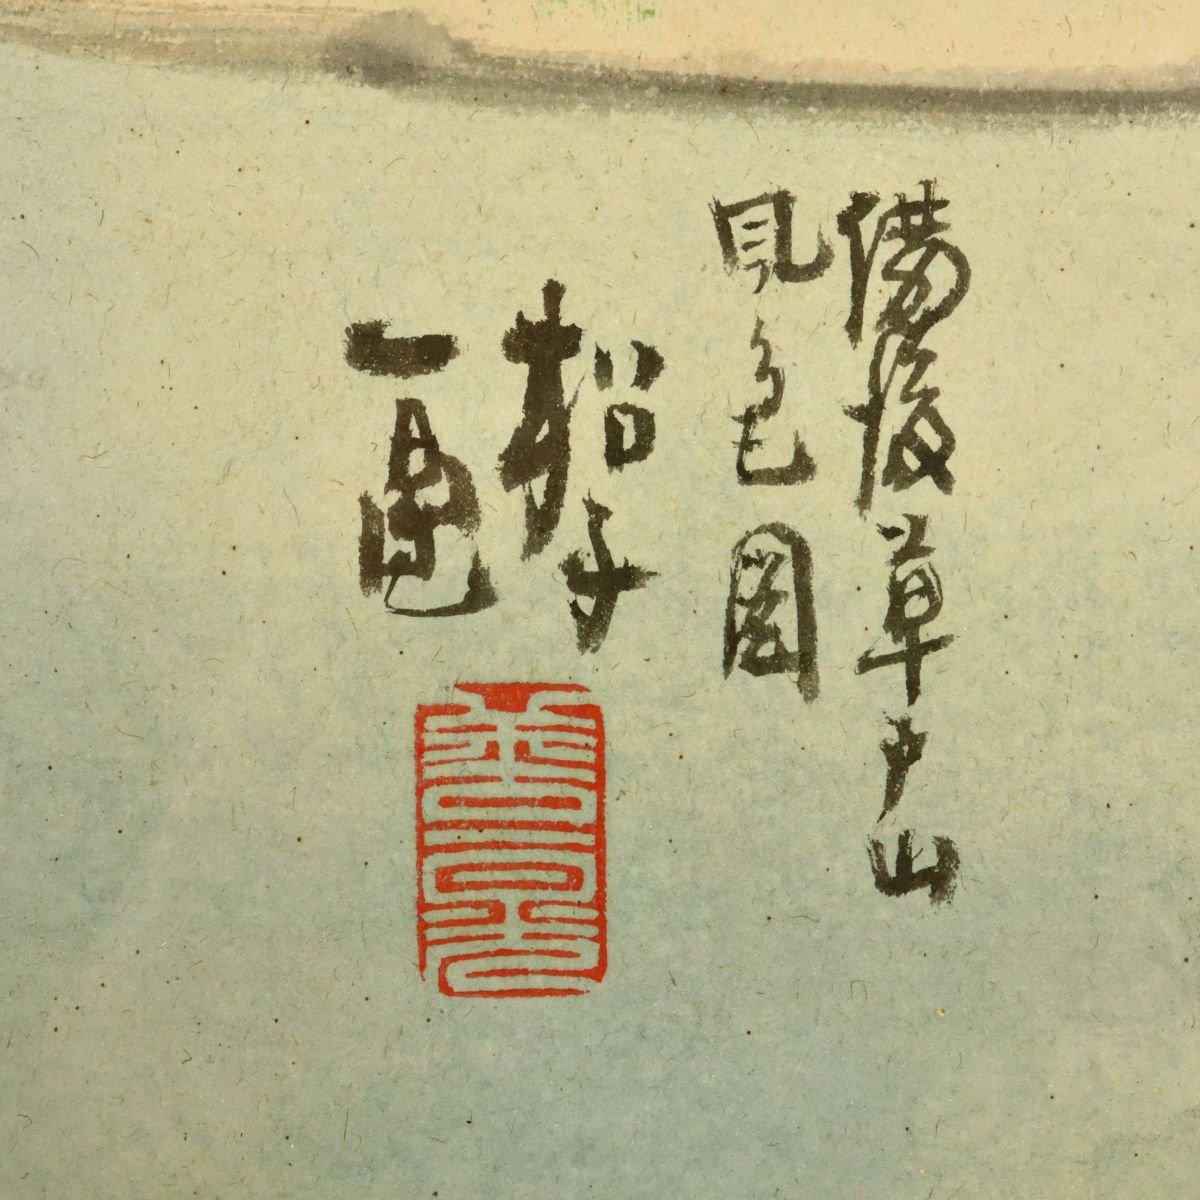 備後草戸山
見色図
松子
一画